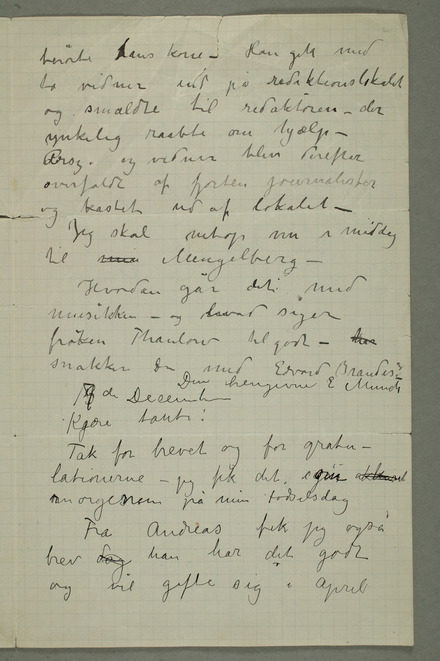 berørte hans kone – Han gik med
to vidner ind på redaktionslokalet
og smældte til redaktören – der
ynkelig raabte om hjælp –
og vidner blev derefter
overfaldt af fjorten journalister
og kastet ud af lokalet –
Jeg skal netop nu i middag
til Mengelberg –
Hvordan går det med
musikken – og hvad siger
frøken Thaulow til godt –
snakker De med Edvard Brandes?
Din hengivne E Munch
de December
Kjære tante!
Tak for brevet og for gratu-
lationerne – jeg fik det
morgenen på min fødselsdag
Fra Andreas fik jeg også
brev han har det godt
og vil gifte sig i April